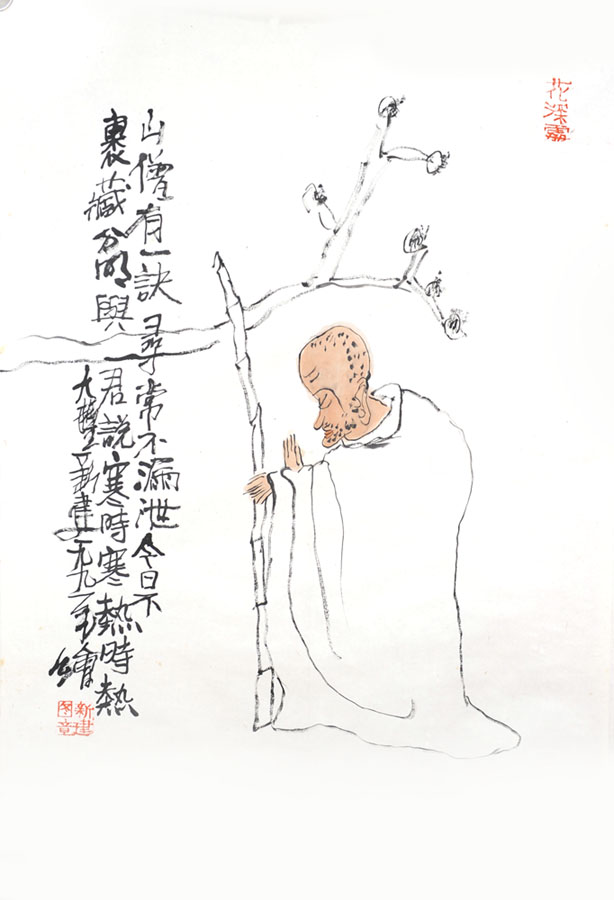 花深
山僧有一訣尋常不漏泄今日不
裹藏分明與君說寒時寒熱時熱
新建一九九一年繪
新建
图章